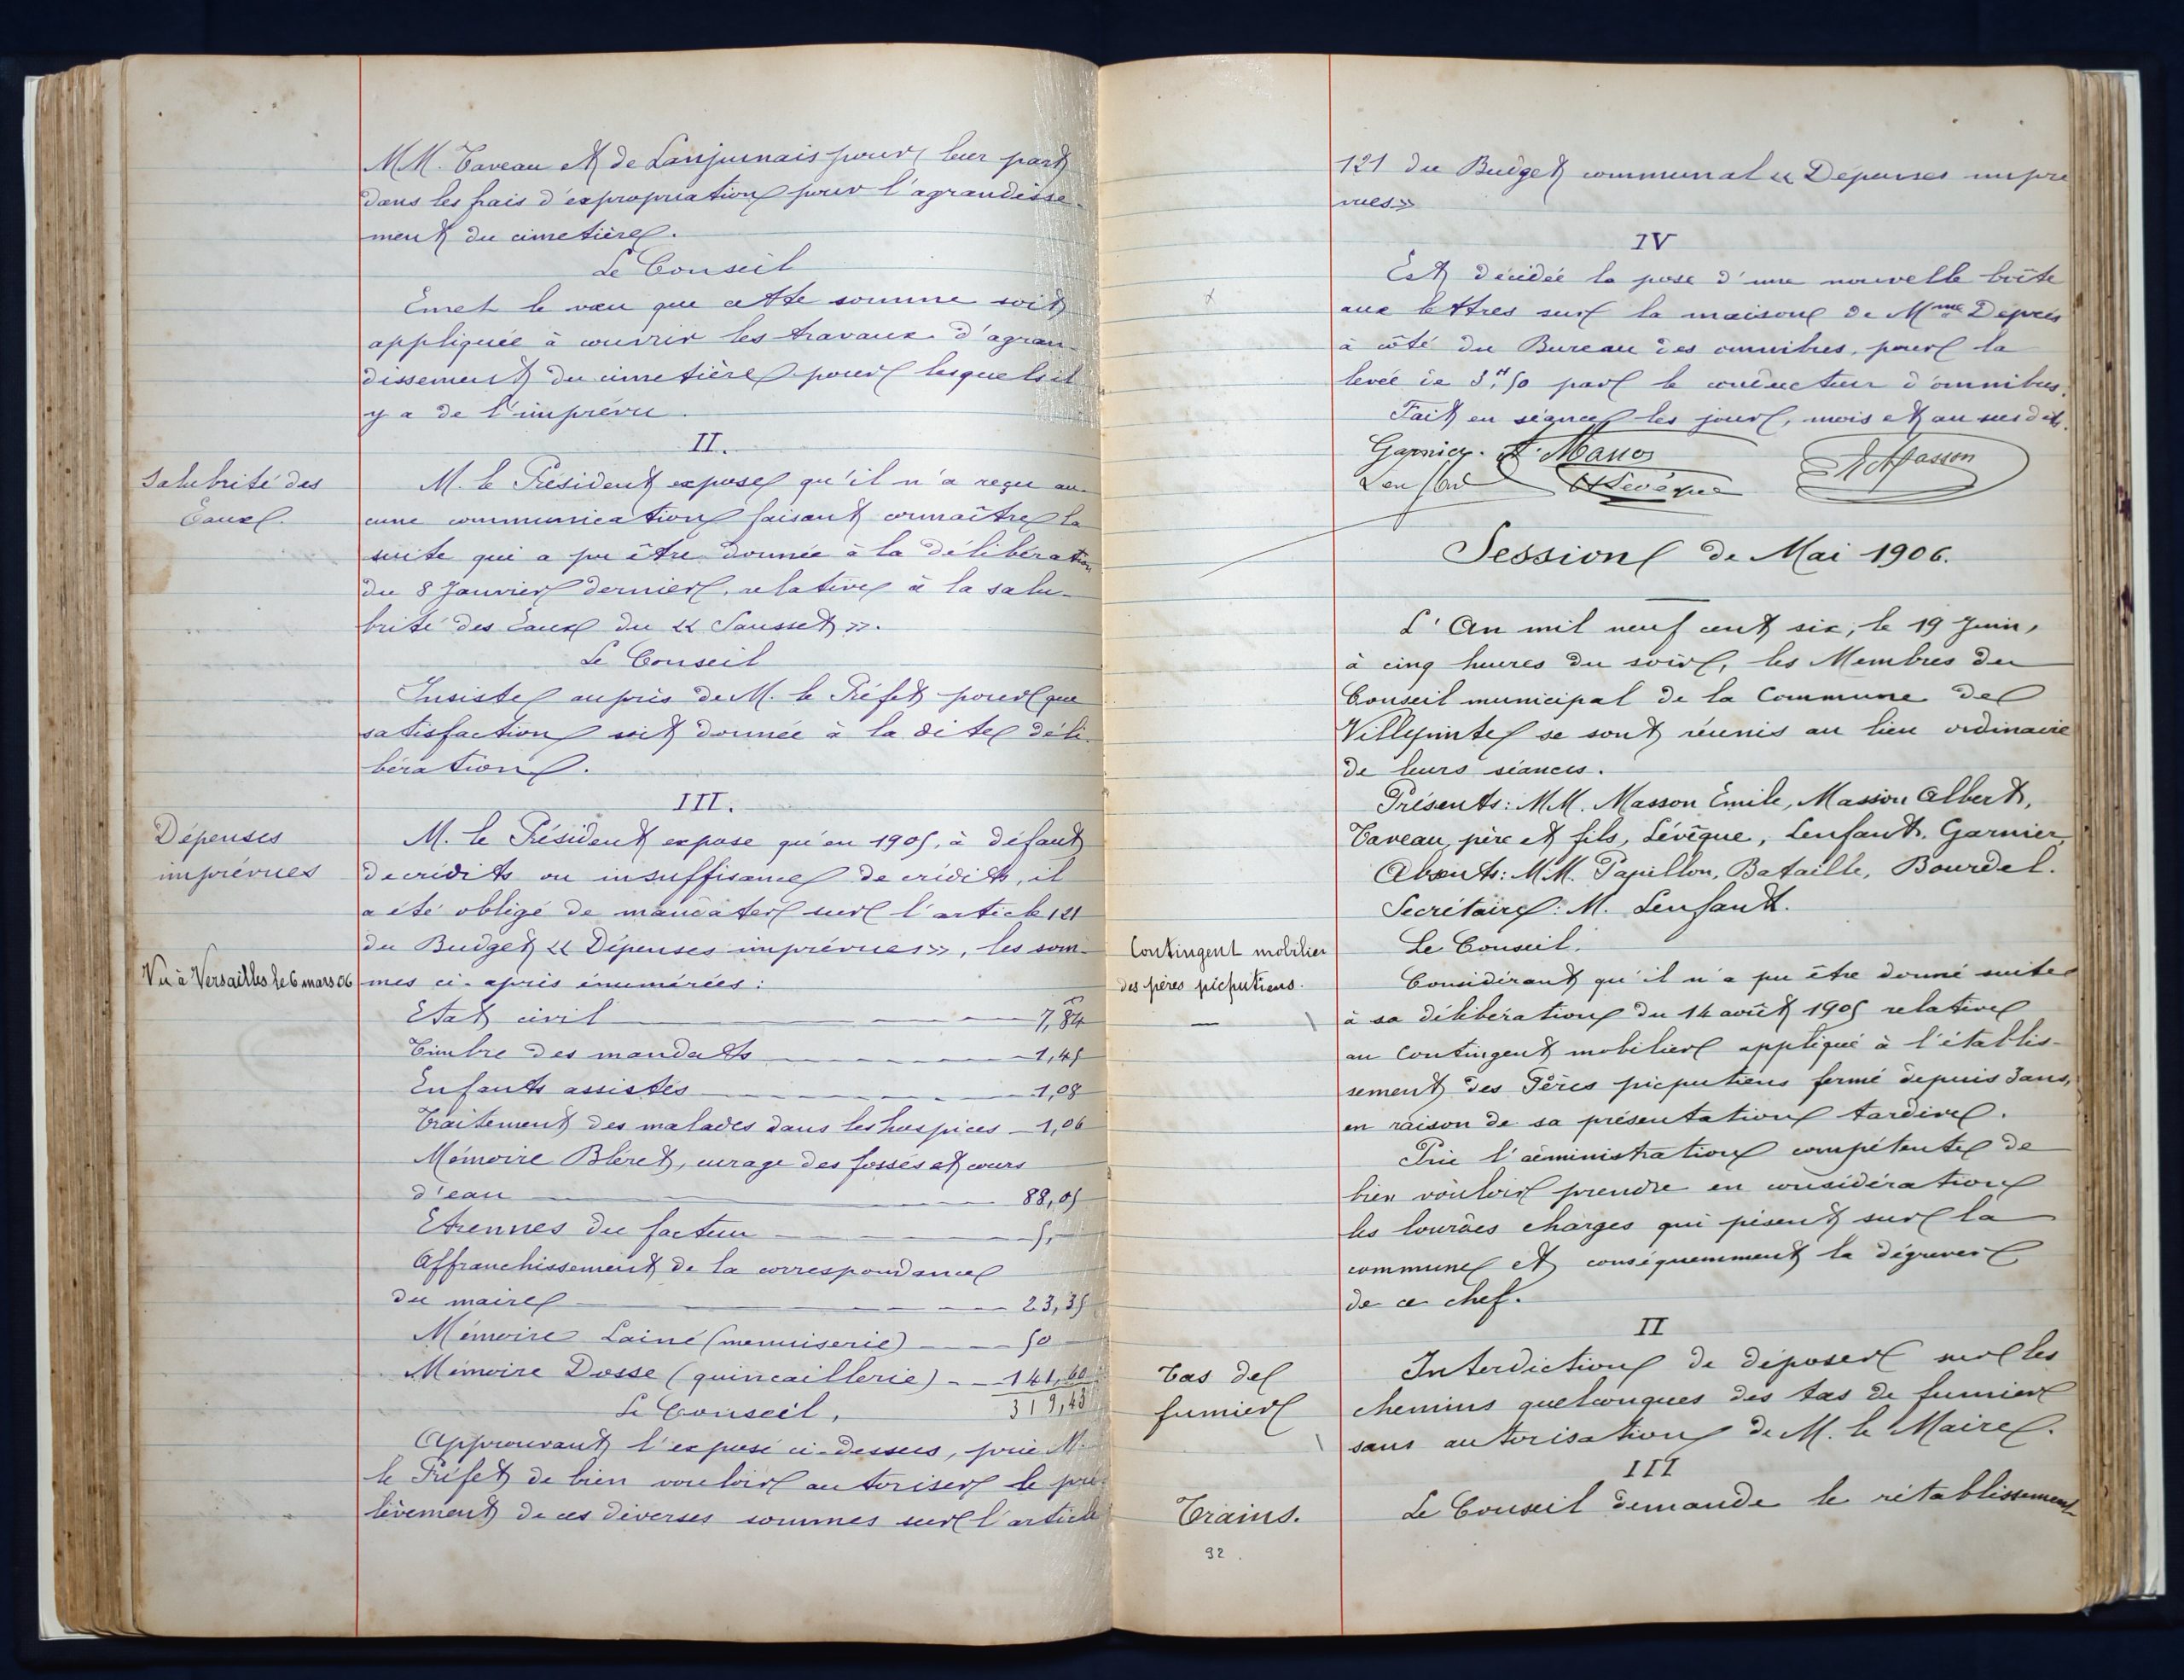 MM. Taveau et de Lanjuinais pour leur part
dans les frais d'expropriation pour l'agrandisse-
ment du cimetière.
Le Conseil
Emet le vœu que cette somme soit
appliquée à couvrir les travaux d'agran-
dissement du cimetière pour lesquels il
y a de l'imprévu.
II.
Salubrité des
Eaux.
M. le Président expose qu'il n'a reçu au-
cune communication faisant connaître la
suite qui a pu être donnée à la délibération
du 8 Janvier dernier, relative à la salu-
brité des Eaux du « Sausset ».
Le Conseil
Insiste auprès de M. le Préfet pour que
satisfaction soit donnée à la dite déli-
bération.
III.
Dépenses
imprévues
M. le Président expose qu'en 1905, à défaut
de crédits ou insuffisance de crédits, il
a été obligé de mandater sur l'article 121
du Budget « Dépenses imprévues », les som-
Vu à Versailles le 6 mars 06
mes ci-après énumérées :
Etat civil 7,84
Timbre des mandats 1,45
Enfants assistés 1,08
Traitement des malades dans les hospices 1,06
Mémoire Bléret, curage des fossés et cours
d'eau 88,05
Etrennes du facteur 5,
Affranchissement de la correspondance
du maire 23,35
Mémoire Lainé (menuiserie) 50
Mémoire Dosse (quincaillerie) 141,60
319,43
Le Conseil,
Approuvant l'exposé ci-dessus, prie M.
le Préfet de bien vouloir autoriser le pré-
lèvement de ces diverses sommes sur l'article
121 du Budget communal « Dépenses impré
vues »
IV
Est décidée la pose d'une nouvelle boîte
aux lettres sur la maison de Mme Depreis
à côté du Bureau des omnibus, pour la
levée de 3H,50 par le conducteur d'omnibus.
Fait en séance les jour, mois et an susdits.
Garnier. A. Masson
A Masson
Lenfant Lévêque
Session de Mai 1906.
L'An mil neuf cent six, le 19 Juin,
à cinq heures du soir, les Membres du
Conseil municipal de la Commune de
Villepinte se sont réunis au lieu ordinaire
de leurs séances.
Présents : MM. Masson Emile, Masson Albert,
Taveau, père et fils, Lévêque, Lenfant. Garnier,
Absents : MM. Papillon, Bataille, Bourdel.
Secrétaire : M. Lenfant.
Contingent mobilier
des pères picputiens.
Le Conseil,
Considérant qu'il n'a pu être donné suite
à sa délibération du 14 août 1905 relative
au Contingent mobilier appliqué à l'établis-
sement des Pères picputiens fermé depuis 3 ans,
en raison de sa présentation tardive.
Prie l'administration compétente de
bien vouloir prendre en considération
les lourdes charges qui pèsent sur la
commune et conséquemment la dégrever
de ce chef.
II
Tas de
fumier
Interdiction de déposer sur les
chemins quelconques des tas de fumier
sans autorisation de M. le Maire.
III
Trains.
Le Conseil demande le rétablissement
92